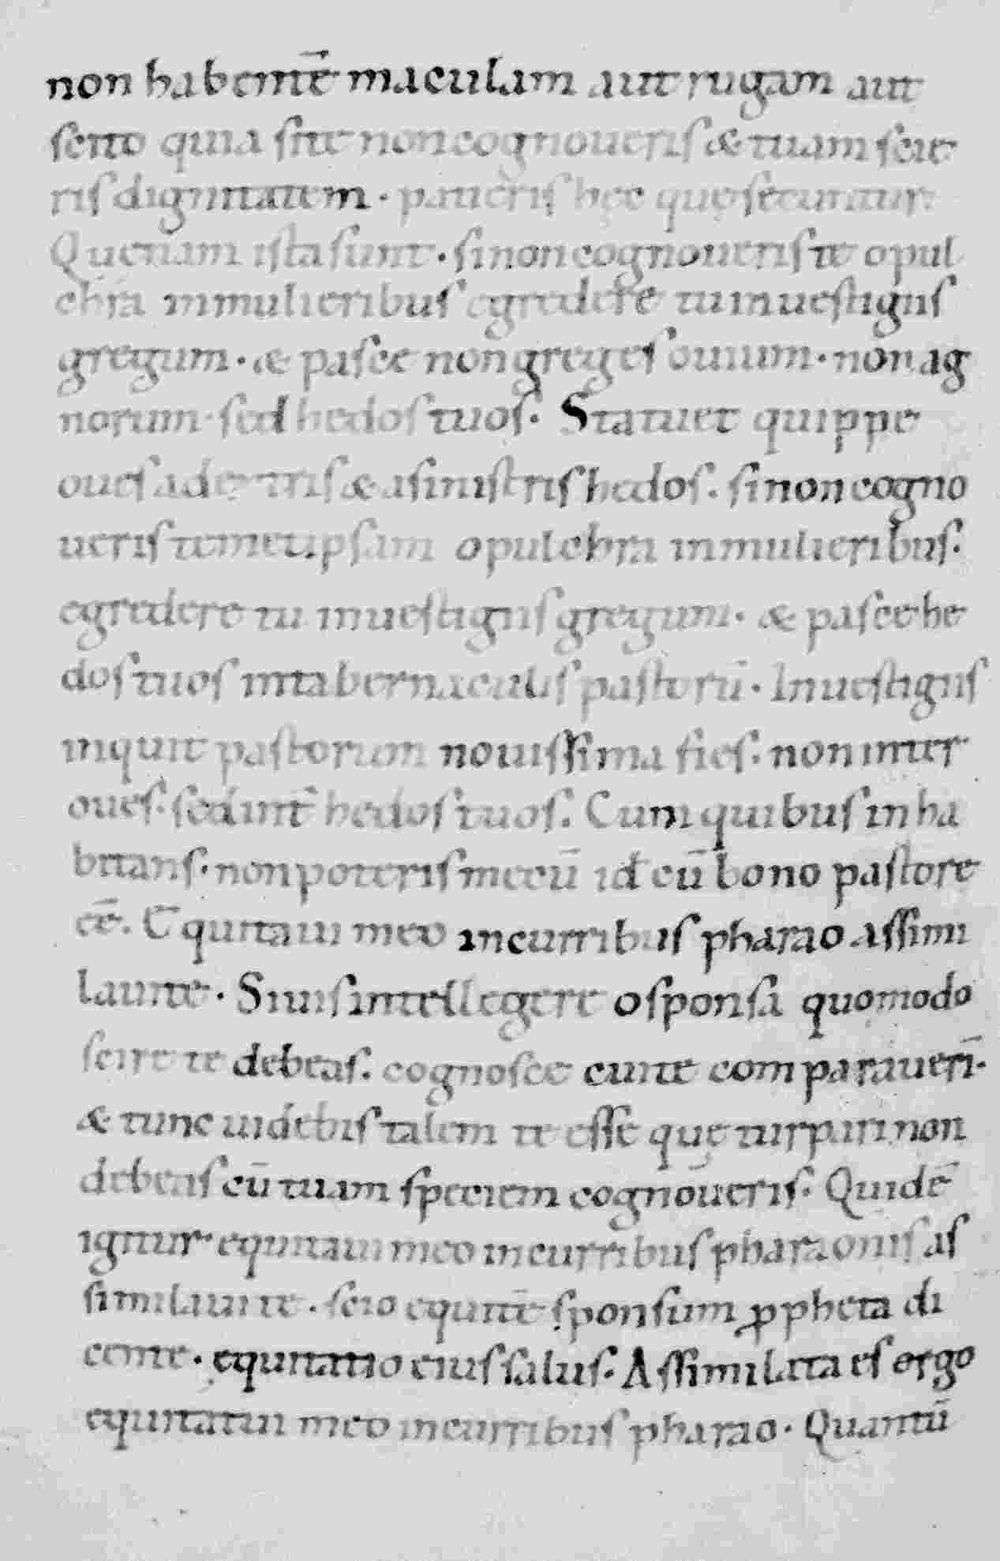 non habentē maculam aut rugam aut
scito quia si te non cognoueris & tuam scie
ris dignitatem · patieris hęc quę secuntur
Quenam ista sunt · si non cognoueris te o pul
chra in mulieribus egredere tu in uestigiis
gregum · & pasce non greges ouium · non ag
norum · sed hedos tuos. Statuet quippe
oues a dextris & a sinistris hedos. si non cogno
ueris temet ipsam o pulchra in mulieribus.
egredere tu in uestigiis gregum · & pasce he
dos tuos in tabernaculis pastorū · In uestigiis
inquit pastorum nouissima fies. non inter
oues. sed int̄ hedos tuos. Cum quibus inha
bitans. non poteris mecū id ē cū bono pastore
eē. Equitatui meo in curribus pharao assimi
laui te · Si uis intellegere o sponsa quomodo
scire te debeas. cognosce cui te comparauerī.
& tunc uidebis talem te esse quę turpari non
debeas cū tuam speciem cognoueris. Quid ē
igitur. equitatui meo in curribus pharaonis as
similaui te. scio equitē sponsum ꝓpheta di
cente. equitatio eius salus. Assimilata es ergo
equitatui meo in curribus pharao. Quantū